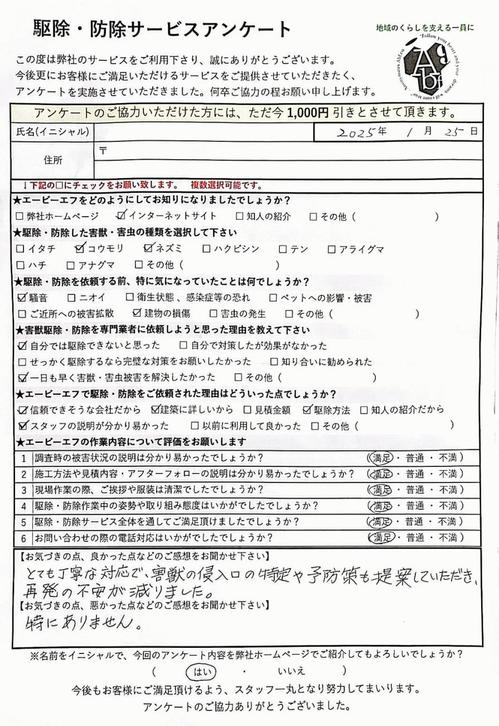 駆除・防除サービスアンケート
地域のくらしを支える一員に
この度は弊社のサービスをご利用下さり、誠にありがとうございます。
今後更にお客様にご満足いただけるサービスをご提供させていただきたく、
アンケートを実施させていただきました。何卒ご協力の程お願い申し上げます。
アンケートのご協力いただけた方には、ただ今1,000円引きとさせて頂きます。
氏名(イニシャル)
2025年 1月 25日
住所
〒
↓下記の□にチェックをお願い致します。 複数選択可能です。
★エービーエフをどのようにしてお知りになりましたでしょうか?
□弊社ホームページ ☑インターネットサイト □知人の紹介 □その他( )
★駆除・防除した害獣・害虫の種類を選択して下さい
□イタチ ☑コウモリ ☑ネズミ □ハクビシン □テン □アライグマ
□ハチ □アナグマ □その他( )
★駆除・防除を依頼する前、特に気になっていたことは何でしょうか?
☑騒音 □ニオイ □衛生状態、感染症等の恐れ □ペットへの影響・被害
□ご近所への被害拡散 ☑建物の損傷 □害虫の発生 □その他( )
★害獣駆除・防除を専門業者に依頼しようと思った理由を教えて下さい
☑自分では駆除できないと思った □自分で対策したが効果がなかった
□せっかく駆除するなら完璧な対策をお願いしたかった □知り合いに勧められた
☑一日も早く害獣・害虫被害を解決したかった □その他( )
★エービーエフで駆除・防除をご依頼された理由はどういった点でしょうか?
☑信頼できそうな会社だから ☑建築に詳しいから □見積金額 ☑駆除方法 □知人の紹介だから
☑スタッフの説明が分かり易かった □以前に利用して良かった □その他( )
★エービーエフの作業内容について評価をお願いします
1 調査時の被害状況の説明は分かり易かったでしょうか? (満足・普通・不満)
2 施工方法や見積内容・アフターフォローの説明は分かり易かったでしょうか? (満足・普通・不満)
3 現場作業の際、ご挨拶や服装は清潔でしたでしょうか? (満足・普通・不満)
4 駆除・防除作業中の姿勢や取り組み態度はいかがでしたでしょうか? (満足・普通・不満)
5 駆除・防除サービス全体を通してご満足頂けましたでしょうか? (満足・普通・不満)
6 お問い合わせの際の電話対応はいかがでしたでしょうか? (満足・普通・不満)
【お気づきの点、良かった点などのご感想をお聞かせ下さい】
とても丁寧な対応で、害獣の侵入口の特定や予防策も提案していただき、
再発の不安が減りました。
【お気づきの点、悪かった点などのご感想をお聞かせ下さい】
特にありません。
※名前をイニシャルで、今回のアンケート内容を弊社ホームページでご紹介してもよろしいでしょうか?
( はい ・ いいえ )
今後もお客様にご満足頂けるよう、スタッフ一丸となり努力してまいります。
アンケートのご協力ありがとうございました。